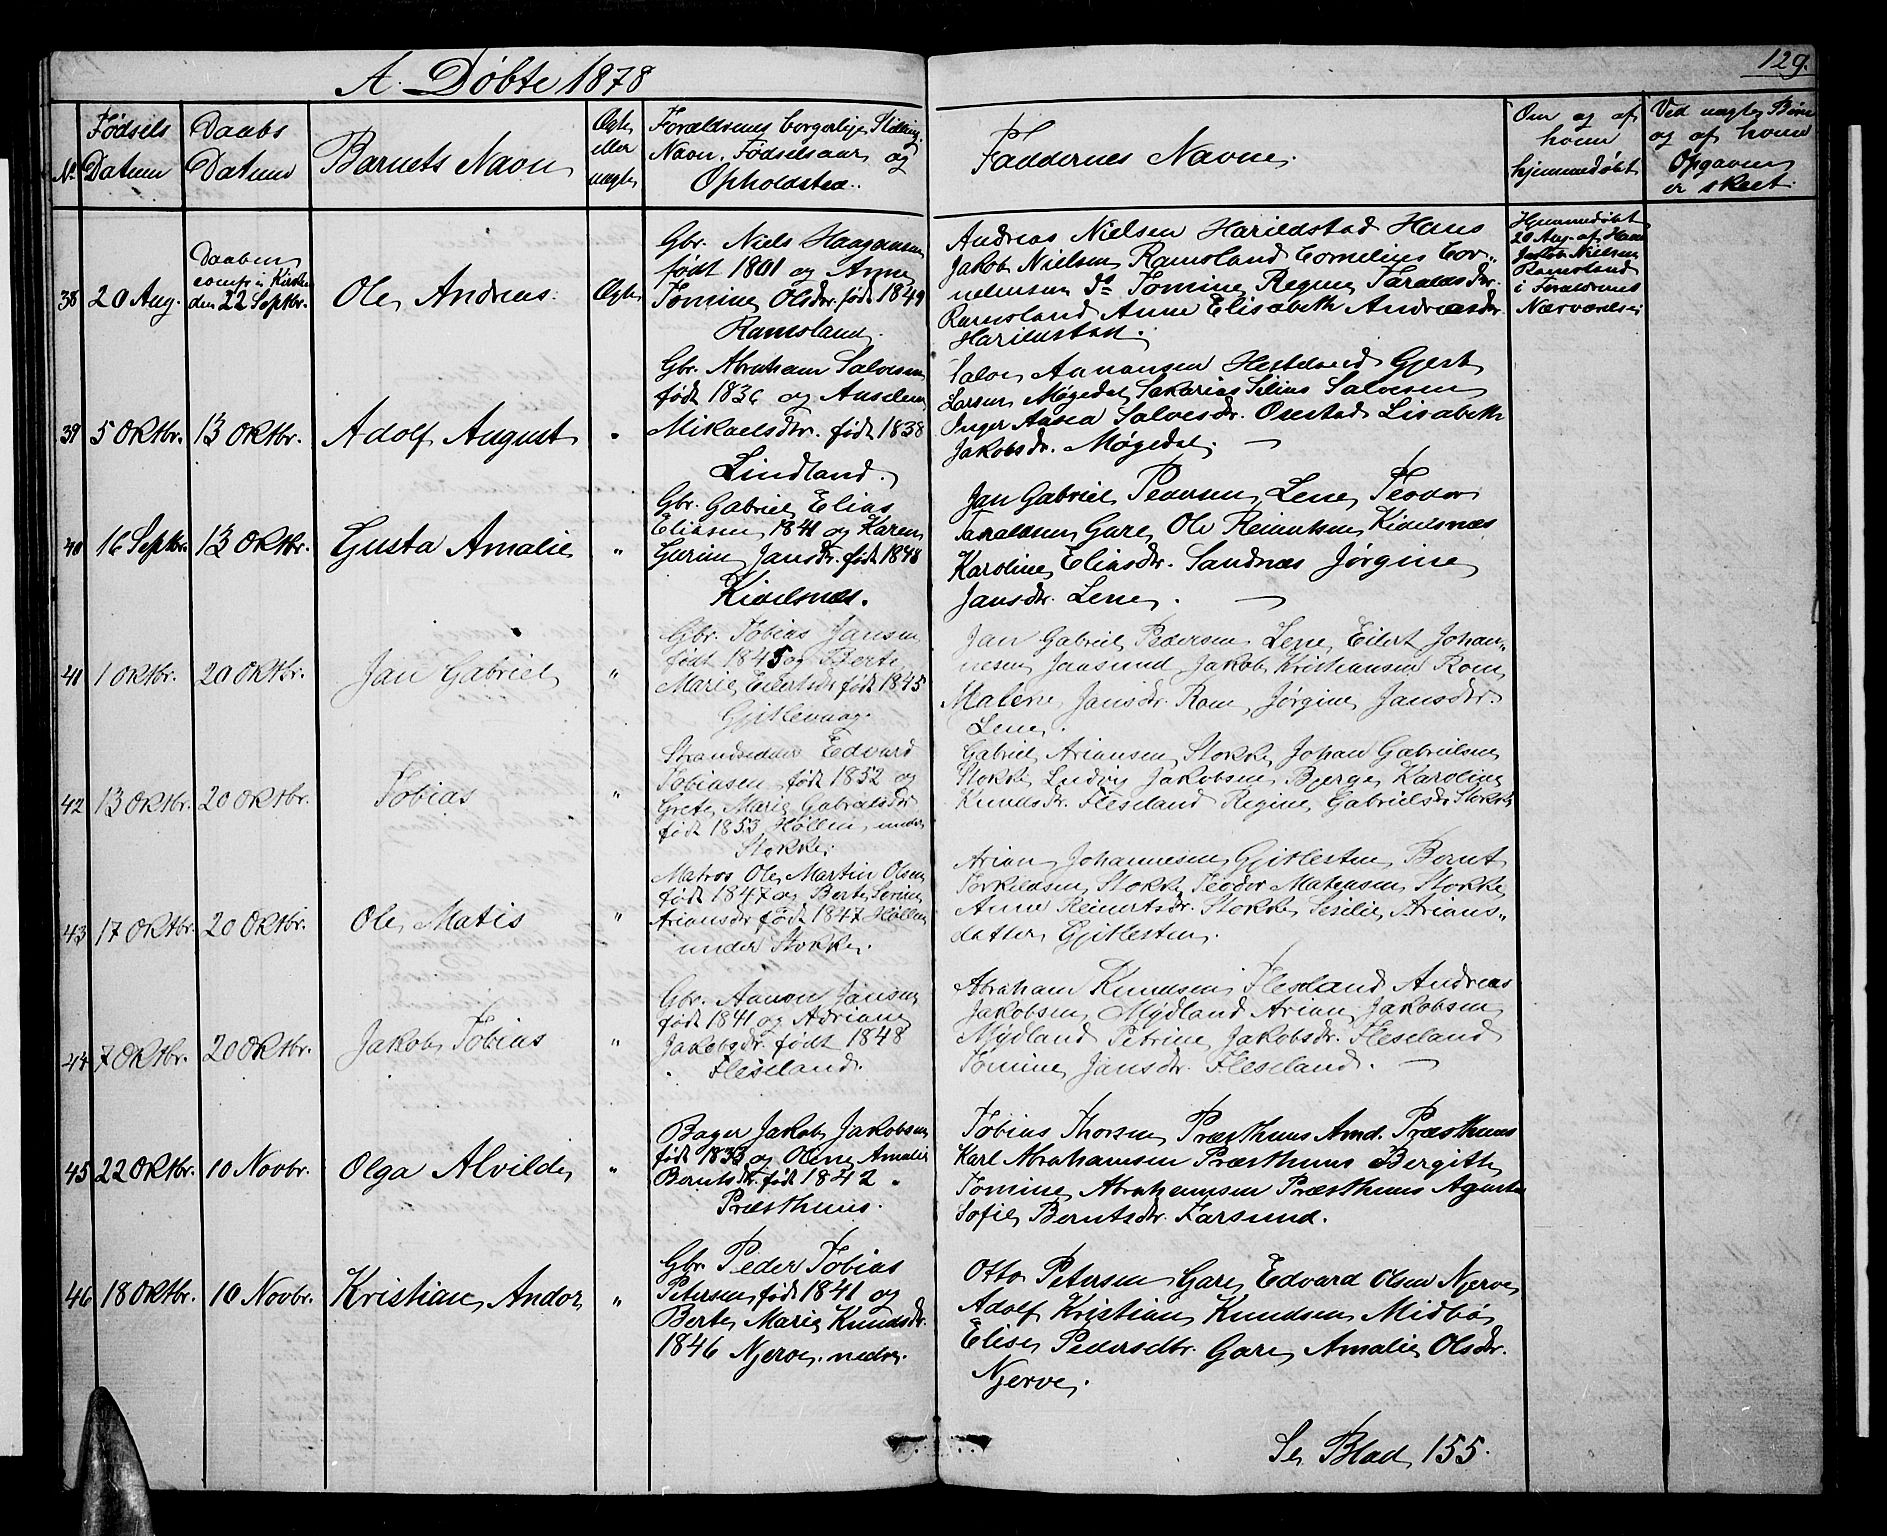 A. Døbte 1878
129.
No.
Fødsels Datum
Daabs Datum
Barnets Navn
Ægte eller uægte
Forældrenes borgerlige Stilling,
Navn, Fødselsaar og
Opholdsted.
Faddernes Navne.
Om og af hvem hjemmedøbt
Ved uægte Børn og af hvem Opgaven er skeet.
38
20 Aug.
Daaben
i Kirken
den 22 Septbr.
Ole Andreas.
Ægte
Gbr. Niels Haagensen
født 1801 og Anne
Tomine Olsdtr. født 1849
Ramsland.
Andreas Nielsen Harildstad Hans
Jakob Nielsen Ramsland Cornelius Cor-
neliusen Do Tomine Regine Taraldsdtr.
Ramsland Anne Elisabeth Andreasdtr.
Harildstad.
Hjemmedøbt
20 Aug. af Hans
Jakob Nielsen
Ramsland
i Forældrenes
Nærværelse
39
5 Oktbr.
13 Oktbr.
Adolf August
"
Gbr. Abraham Salvesen
født 1836 og Anselene
Mikaelsdtr. født 1838
Lindland.
Salve Aanansen Hestelund Gjert
Larsen Møgedal Sakarias Silius Salvesen
Inger Aasea Salvesdtr. Orestad Lisabeth
Jakobsdtr. Møgedal. —
40
16 Septbr.
13 Oktbr.
Gusta Amalie
"
Gbr. Gabriel Elias
Eliasen 1841 og Karen
Gurine Jansdtr. født 1848
Kidelsnæs.
Jan Gabriel Pedersen Lene Teodor
Taraldsen Gare Ole Reinertsen Kidelsnæs
Karoline Eliasdtr. Sandnæs Jørgine
Jansdtr. Lene. —
41
1 Oktbr.
20 Oktbr.
Jan Gabriel
"
Gbr. Tobias Jansen
født 1845 og Berte
Marie Eilertsdtr født 1845
Gjitlevaag.
Jan Gabriel Pedersen Lene Eilert Johan-
nesen Jaasund Jakob Kristiansen Rom
Malene Jansdtr. Rom Jørgine Jansdtr.
Lene.
42
13 Oktbr.
20 Oktbr.
Tobias
"
Strandsidder Edvard
Tobiasen født 1852 og
Grete Marie Gabrielsdtr
født 1853 Høllen under
Stokke.
Gabriel Ariansen Stokke Johan Gabrielsen
Stokke Ludvig Jakobsen Bjerge Karoline
Knudsdtr. Fleseland Regine Gabrielsdtr Stokke
43
17 Oktbr.
20 Oktbr.
Ole Matis
"
Matros Ole Martin Olsen
født 1847 og Berte Serine
Ariansdtr født 1847 Høllen
under Stokke.
Arian Johannesen Gjitlesten Bernt
Torkildsen Stokke Teodor Matensen Stokke
Anne Reinertsdtr. Stokke Sesilie Arians-
datter Gjitlesten.
44
7 Oktbr.
20 Oktbr.
Jakob Tobias
"
Gbr. Aanon Jansen
født 1841 og Adriane
Jakobsdtr. født 1848
Fleseland.
Abraham Knudsen Fleseland Andreas
Jakobsen Mydland Arian Jakobsen
Mydland Petrine Jakobsdtr. Fleseland
Tomine Jansdtr. Fleseland. —
45
22 Oktbr.
10 Novbr.
Olga Alvilde
"
Bager Jakob Jakobsen
født 1833 og Oline Amalie
Berntsdtr. født 1842
Præsthuus.
Tobias Thorsen Præsthuus Amd. Præsthuus
Karl Abrahamsen Præsthuus Bergitte
Tomine Abrahamsen Præsthuus Agusta
Sofie Berntsdtr. Farsund.
46
18 Oktbr.
10 Novbr.
Kristian Andor
"
Gbr Peder Tobias
Petersen født 1841 og
Berte Marie Knudsdtr.
1846 Njerve nedre.
Otto Petersen Gare Edvard Olsen Njerve
Adolf Kristian Knudsen Midbø
Elise Pedersdtr. Gare Amalie Olsdtr.
Njerve.
Se Blad 155.